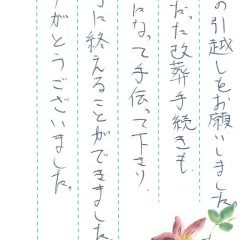 の引越しをお願いしました。
だった改葬手続きも、
になって手伝って下さり、
に終えることができました
がとうございました。